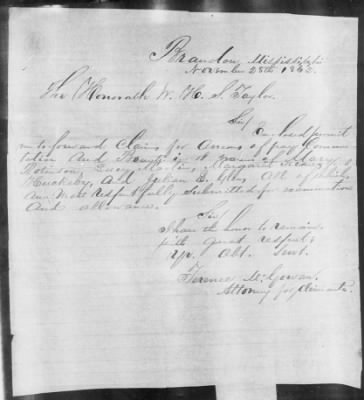 Brandon, Mississippi
November 28th 1863.
The Honorable W. H. S. Taylor
Sir
Inclosed permit
me to forward Claims for arrears of pay Commu
tation And Bounty in
Robinson, Lucy Martin,
Huckeby, And Julian E. All of which
are Most Respectfully Submitted for examination
And allowance.
Sir
I have the honor to remain
with great respect,
Yr. Obt. Servt.
McGowan.
Attorney for claimants.